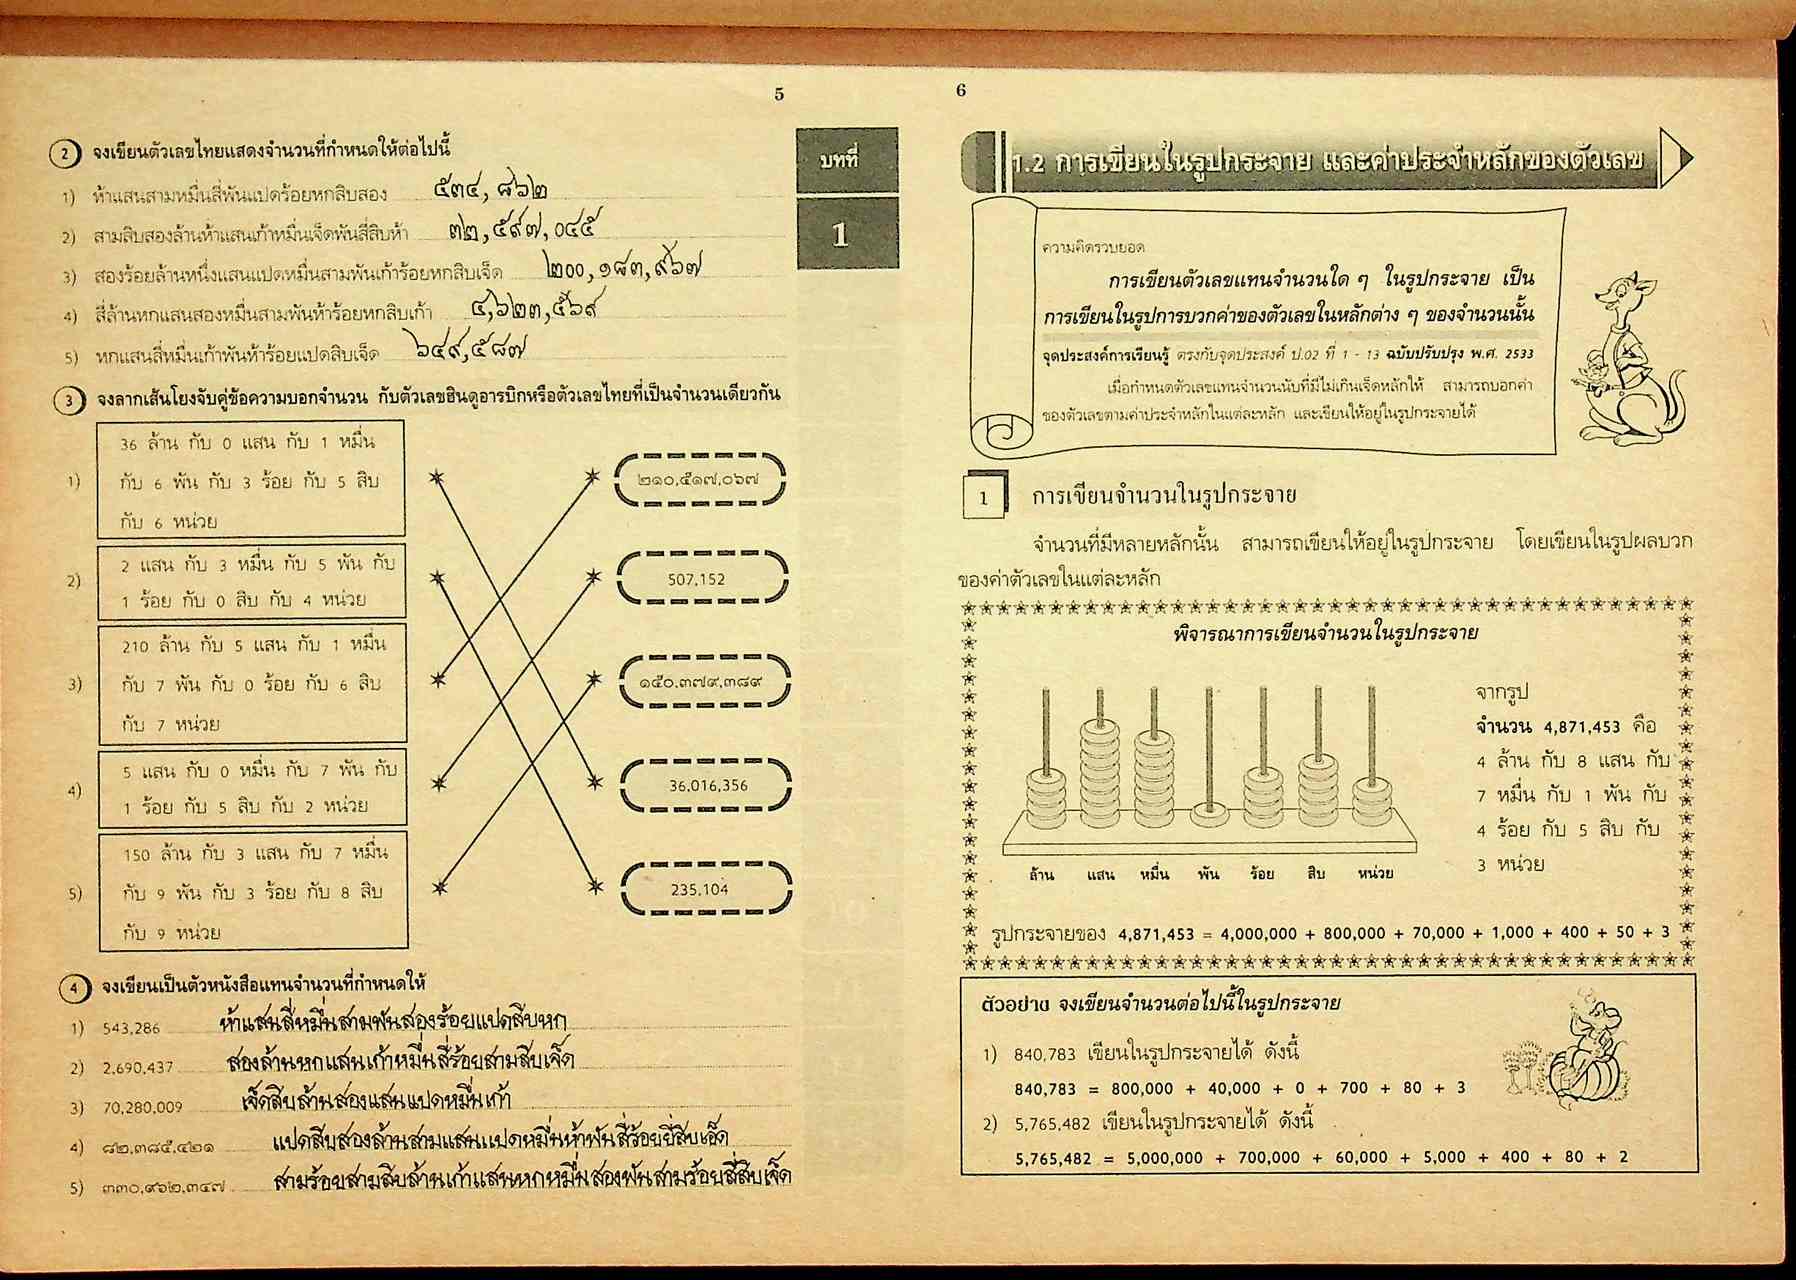 5
2 จงเขียนตัวเลขไทยแสดงจำนวนที่กำหนดให้ต่อไปนี้
1) ห้าแสนสามหมื่นสี่พันแปดร้อยหกสิบสอง ๕๓๔,๘๖๒
2) สามสิบสองล้านห้าแสนเก้าหมื่นเจ็ดพันสี่สิบห้า ๓๒,๕๙๗,๐๔๕
3) สองร้อยล้านหนึ่งแสนแปดหมื่นสามพันเก้าร้อยหกสิบเจ็ด ๒๐๐,๑๘๓,๙๖๗
4) สี่ล้านหกแสนสองหมื่นสามพันห้าร้อยหกสิบเก้า ๔,๖๒๓,๕๖๙
5) หกแสนสี่หมื่นเก้าพันห้าร้อยแปดสิบเจ็ด ๖๔๙,๕๘๗
บทที่
1
3 จงลากเส้นโยงจับคู่ข้อความบอกจำนวน กับตัวเลขฮินดูอารบิกหรือตัวเลขไทยที่เป็นจำนวนเดียวกัน
1) 36 ล้าน กับ 0 แสน กับ 1 หมื่น
กับ 6 พัน กับ 3 ร้อย กับ 5 สิบ
กับ 6 หน่วย
๒๑๐,๕๑๗,๐๖๗
2) 2 แสน กับ 3 หมื่น กับ 5 พัน กับ
1 ร้อย กับ 0 สิบ กับ 4 หน่วย
507,152
3) 210 ล้าน กับ 5 แสน กับ 1 หมื่น
กับ 7 พัน กับ 0 ร้อย กับ 6 สิบ
กับ 7 หน่วย
๑๕๐,๓๗๙,๓๘๙
4) 5 แสน กับ 0 หมื่น กับ 7 พัน กับ
1 ร้อย กับ 5 สิบ กับ 2 หน่วย
36,016,356
5) 150 ล้าน กับ 3 แสน กับ 7 หมื่น
กับ 9 พัน กับ 3 ร้อย กับ 8 สิบ
กับ 9 หน่วย
235,104
4 จงเขียนเป็นตัวหนังสือแทนจำนวนที่กำหนดให้
1) 543,286 ห้าแสนสี่หมื่นสามพันสองร้อยแปดสิบหก
2) 2,690,437 สองล้านหกแสนเก้าหมื่นสี่ร้อยสามสิบเจ็ด
3) 70,280,009 เจ็ดสิบล้านสองแสนแปดหมื่นเก้า
4) ๘๒,๓๘๕,๔๒๑ แปดสิบสองล้านสามแสนแปดหมื่นห้าพันสี่ร้อยยี่สิบเอ็ด
5) ๓๓๐,๙๖๒,๓๔๗ สามร้อยสามสิบล้านเก้าแสนหกหมื่นสองพันสามร้อยสี่สิบเจ็ด
6
1.2 การเขียนในรูปกระจาย และค่าประจำหลักของตัวเลข
ความคิดรวบยอด
การเขียนตัวเลขแทนจำนวนใด ๆ ในรูปกระจาย เป็น
การเขียนในรูปการบวกค่าของตัวเลขในหลักต่าง ๆ ของจำนวนนั้น
จุดประสงค์การเรียนรู้ ตรงกับจุดประสงค์ ป.02 ที่ 1 - 13 ฉบับปรับปรุง พ.ศ. 2533
เมื่อกำหนดตัวเลขแทนจำนวนนับที่มีไม่เกินเจ็ดหลักให้ สามารถบอกค่า
ของตัวเลขตามค่าประจำหลักในแต่ละหลัก และเขียนให้อยู่ในรูปกระจายได้
1 การเขียนจำนวนในรูปกระจาย
จำนวนที่มีหลายหลักนั้น สามารถเขียนให้อยู่ในรูปกระจาย โดยเขียนในรูปผลบวก
ของค่าตัวเลขในแต่ละหลัก
พิจารณาการเขียนจำนวนในรูปกระจาย
จากรูป
จำนวน 4,871,453 คือ
4 ล้าน กับ 8 แสน กับ
7 หมื่น กับ 1 พัน กับ
4 ร้อย กับ 5 สิบ กับ
3 หน่วย
ล้าน แสน หมื่น พัน ร้อย สิบ หน่วย
รูปกระจายของ 4,871,453 = 4,000,000 + 800,000 + 70,000 + 1,000 + 400 + 50 + 3
ตัวอย่าง จงเขียนจำนวนต่อไปนี้ในรูปกระจาย
1) 840,783 เขียนในรูปกระจายได้ ดังนี้
840,783 = 800,000 + 40,000 + 0 + 700 + 80 + 3
2) 5,765,482 เขียนในรูปกระจายได้ ดังนี้
5,765,482 = 5,000,000 + 700,000 + 60,000 + 5,000 + 400 + 80 + 2